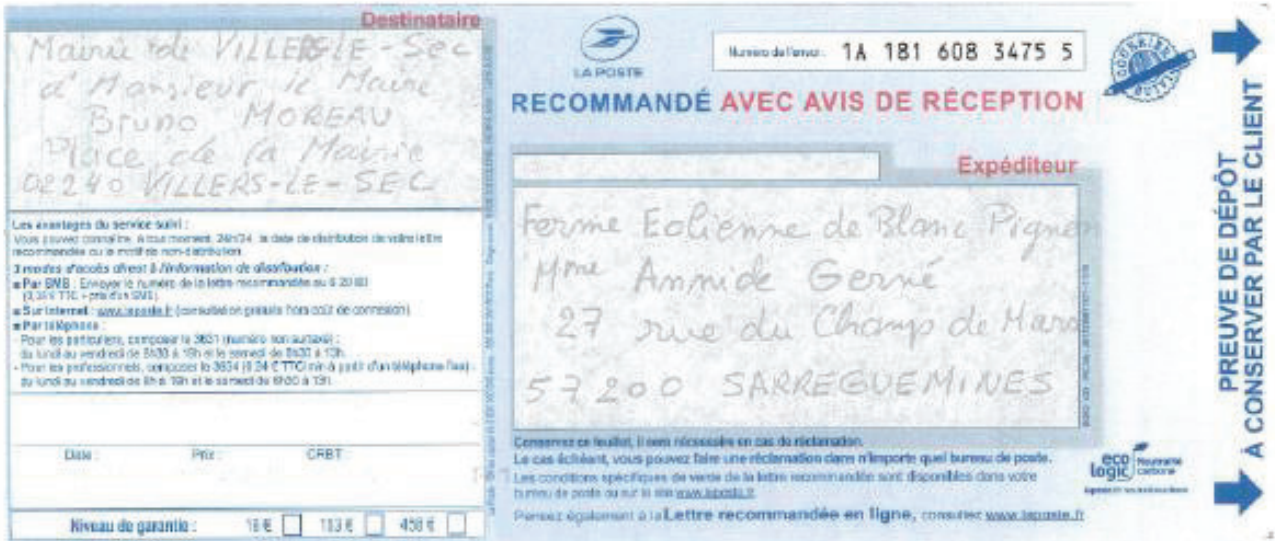 Destinataire
Mairie de VILLERS-LE-Sec
à Monsieur le Maire
Bruno MOREAU
Place de la Mairie
02240 VILLERS-LE-SEC
Les avantages du service suivi :
Vous pouvez connaître, à tout moment, 24h/24, la date de distribution de votre lettre
recommandée ou le motif de non-distribution
3 modes d'accès direct à l'information de distribution :
■ Par SMS : Envoyer le numéro de la lettre recommandée au 6 20 80
(0,35 € TTC + prix d'un SMS)
■ Sur Internet : www.laposte.fr (consultation gratuite hors coût de connexion)
■ Par téléphone :
- Pour les particuliers, composer le 3631 (numéro non surtaxé) :
du lundi au vendredi de 8h30 à 19h et le samedi de 8h30 à 13h.
- Pour les professionnels, composer le 3634 (0,34 € TTC/min à partir d'un téléphone fixe) :
du lundi au vendredi de 8h à 19h et le samedi de 8h00 à 13h.
Date : Prix : CRBT :
Niveau de garantie : 16 € 153 € 458 €
LA POSTE
Numéro de l'envoi : 1A 181 608 3475 5
RECOMMANDÉ AVEC AVIS DE RÉCEPTION
Expéditeur
Ferme Eolienne de Blanc Pignon
Mme Annide Gerné
27 rue du Champ de Mars
57200 SARREGUEMINES
Conservez ce feuillet, il sera nécessaire en cas de réclamation.
Le cas échéant, vous pouvez faire une réclamation dans n'importe quel bureau de poste.
Les conditions spécifiques de vente de la lettre recommandée sont disponibles dans votre
bureau de poste ou sur le site www.laposte.fr
Pensez également à la Lettre recommandée en ligne, consultez www.laposte.fr
eco
logic
Neutralité
carbone
PREUVE DE DÉPÔT
À CONSERVER PAR LE CLIENT